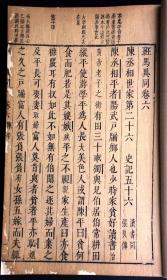 班馬異同卷六
陳丞相世家第二十六 史記五十六
陳丞相平者陽武戶牖鄉人也少時家貧好讀書
有田三十畝獨與兄伯居伯常耕田
縱平使游學平為人長大美色人或謂陳平曰貧何
食而肥若是其嫂嫉平之不視家生產曰亦食
糠覈耳有叔如此不如無有伯聞之逐其婦而棄
之及平長可娶妻富人莫肯與者貧者平亦恥
之久之戶牖富人有張負張負女孫五嫁而夫輒